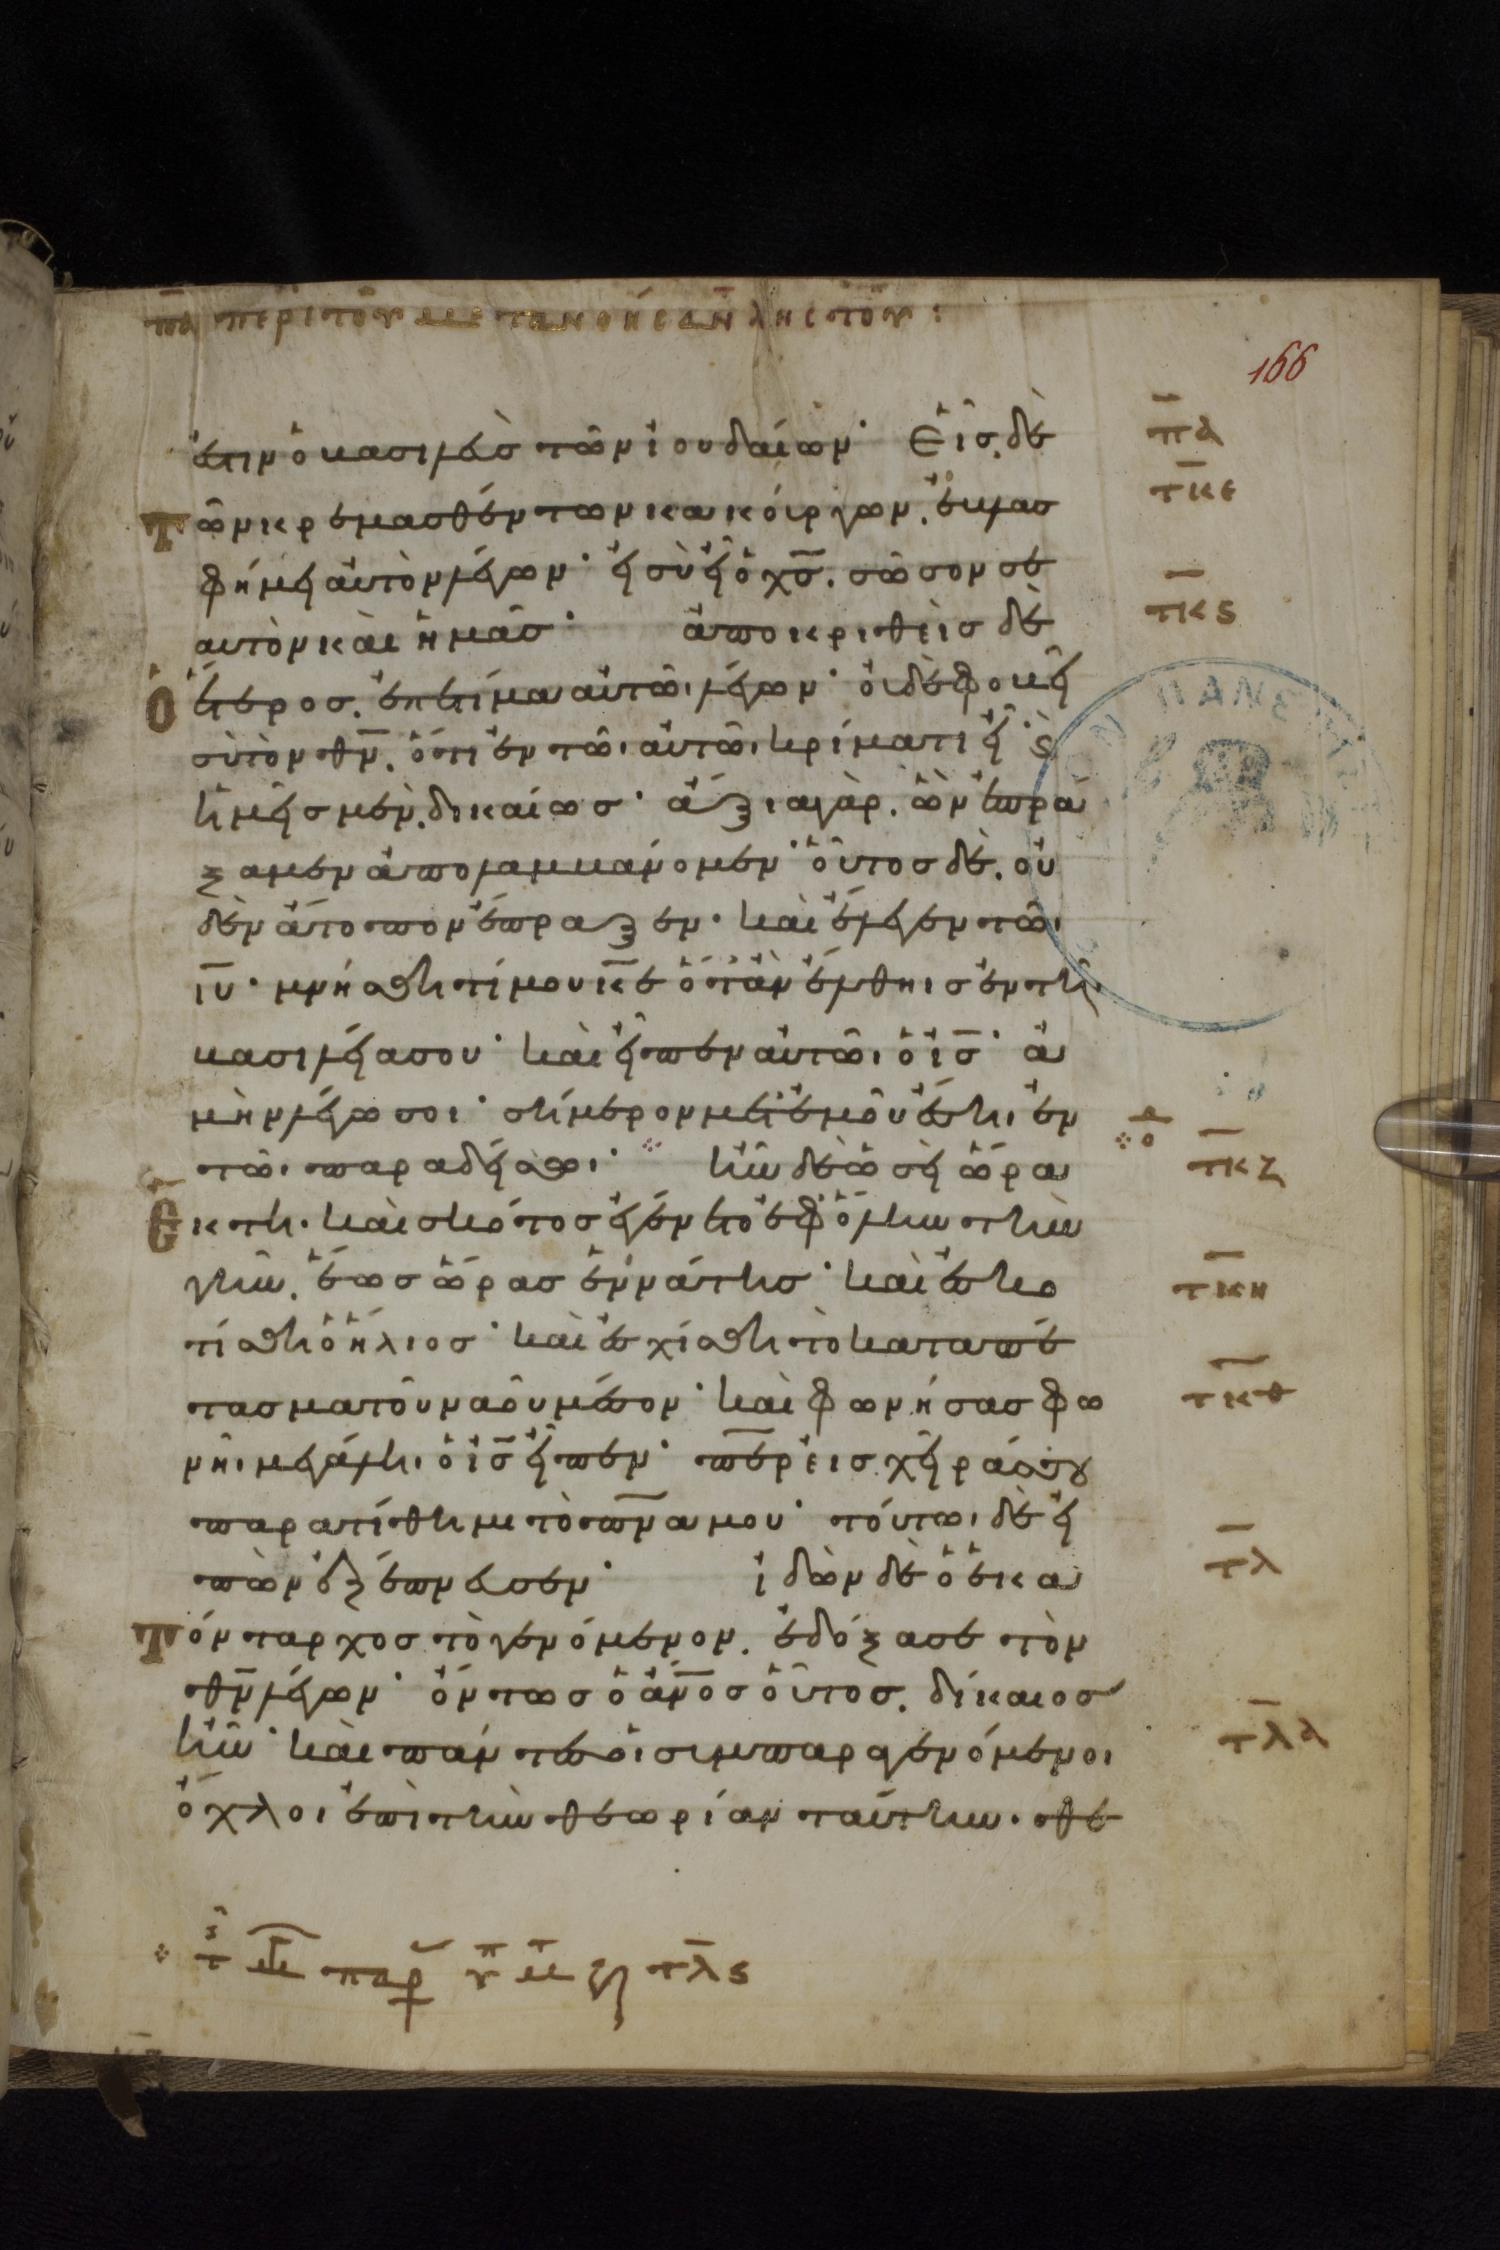 πα περὶ τοῦ μετανοήσαν ληστοῦ :
166
ἐστιν ὁ βασιλεὺσ τῶν ἰουδαίων· Εἷσ δὲ
τῶν κρεμασθέντων κακούργων. ἐβλασ
φήμει αὐτὸν λέγων· εἰ σὺ εἶ ὁ χ̅σ̅. σῶσον σε
αυτὸν καὶ ἡμᾶσ· ἀποκριθεὶσ δὲ
ὁ ἕτεροσ. ἐπετίμα αὐτῶι λέγων· οὐδὲ φοβῆ
σὺ τὸν θ̅ν̅. ὅτι ἐν τῶι αὐτῶι κρίματι εἶ· καὶ
ἡμεῖσ μὲν. δικαίωσ· ἄξια γὰρ. ὧν ἐπρά
ξαμεν ἀπολαμβάνομεν· οὗτοσ δὲ. οὐ
δὲν ἄτοπον ἔπραξεν· καὶ ἔλεγεν τῶι
ι̅υ̅· μνήσθητί μου κ̅ε̅ ὅταν ἔλθηισ ἐν τῆι
βασιλεία σου· καὶ εἶπεν αὐτῶι ὁ ι̅σ̅· ἀ
μὴν λέγω σοι· σήμερον μετ' ἐμοῦ ἔση ἐν
τῶι παραδείσωι· ἦν δὲ ὡσεὶ ὥρα
ἕκτη· καὶ σκότοσ ἐγένετο ἐφ' ὅλην τὴν
γῆν. ἕωσ ὥρασ ἐννάτησ· καὶ ἐσκο
τίσθη ὁ ἥλιοσ· καὶ ἐσχίσθη τὸ καταπέ
τασμα τοῦ ναοῦ μέσον· καὶ φωνήσασ φω
νῆι μεγάλη. ὁ ι̅σ̅ εἶπεν· π̅ε̅ρ̅ εἰσ χεῖράσ σου
παρατίθημι τὸ π̅ν̅α̅ μου· τούτωι δὲ εἰ
πὼν ἐξέπνευσεν· ἰδὼν δὲ ὁ ἑκα
τόνταρχοσ τὸ γενόμενον. ἐδόξασε τὸν
θ̅ν̅ λέγων· ὄντωσ ὁ ἄ̅ν̅ο̅σ̅ οὗτοσ. δίκαιοσ
ἦν· καὶ πάντεσ οἱ συμπαργενόμενοι
ὄχλοι ἐπὶ τὴν θεωρίαν ταύτην. θε
π̅α̅
τ̅κ̅ε̅
τ̅κ̅ς̅
τ̅κ̅ζ̅
τ̅κ̅η̅
τ̅κ̅θ̅
τ̅λ̅
τ̅λ̅α̅
τ̅λ̅ς̅